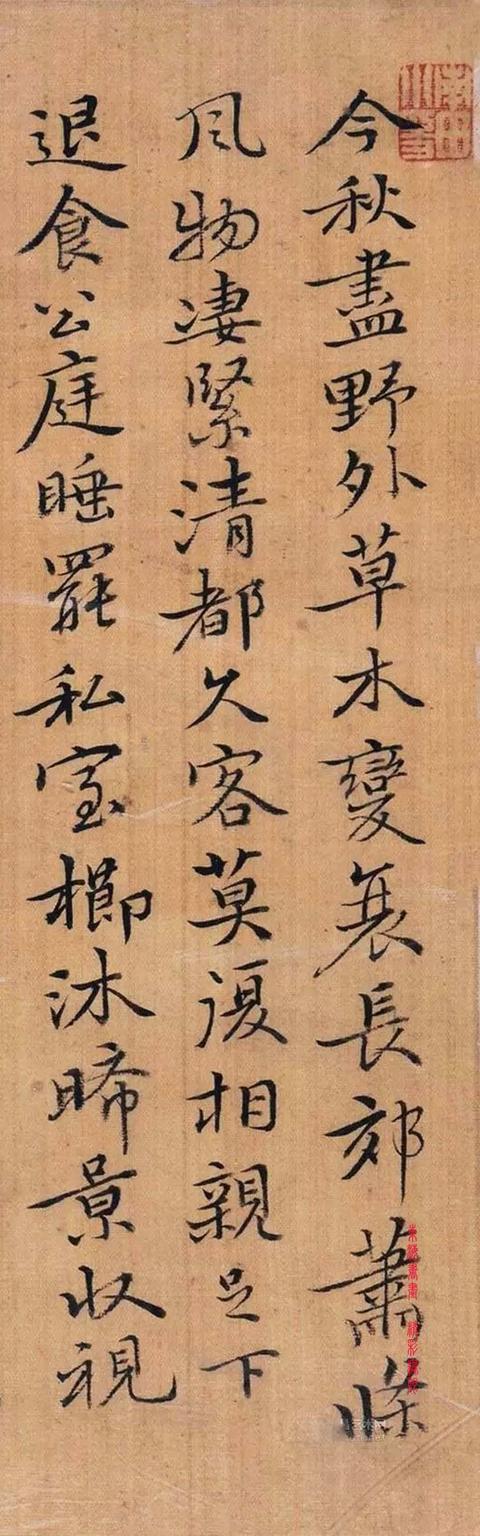 今秋盡野外草木變衰長郊蕭條
風物凄緊清都久客莫復相親足下
退食公庭睡罷私室櫛沐晞景收視